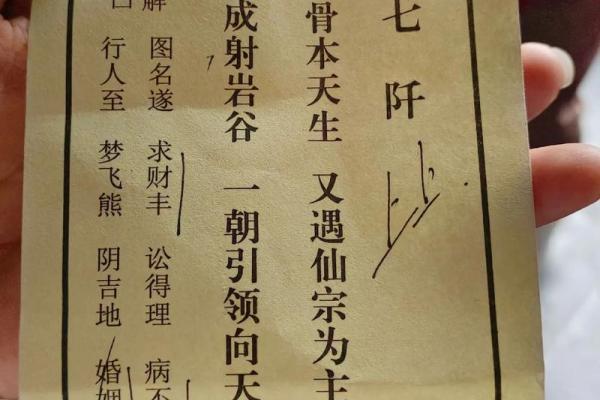 七阡
骨本天生 又遇仙宗为主
成射岩谷 一朝引领向天
解 图名遂 求财丰 讼得理 病不
行人至 梦飞熊 阴吉地 婚姻